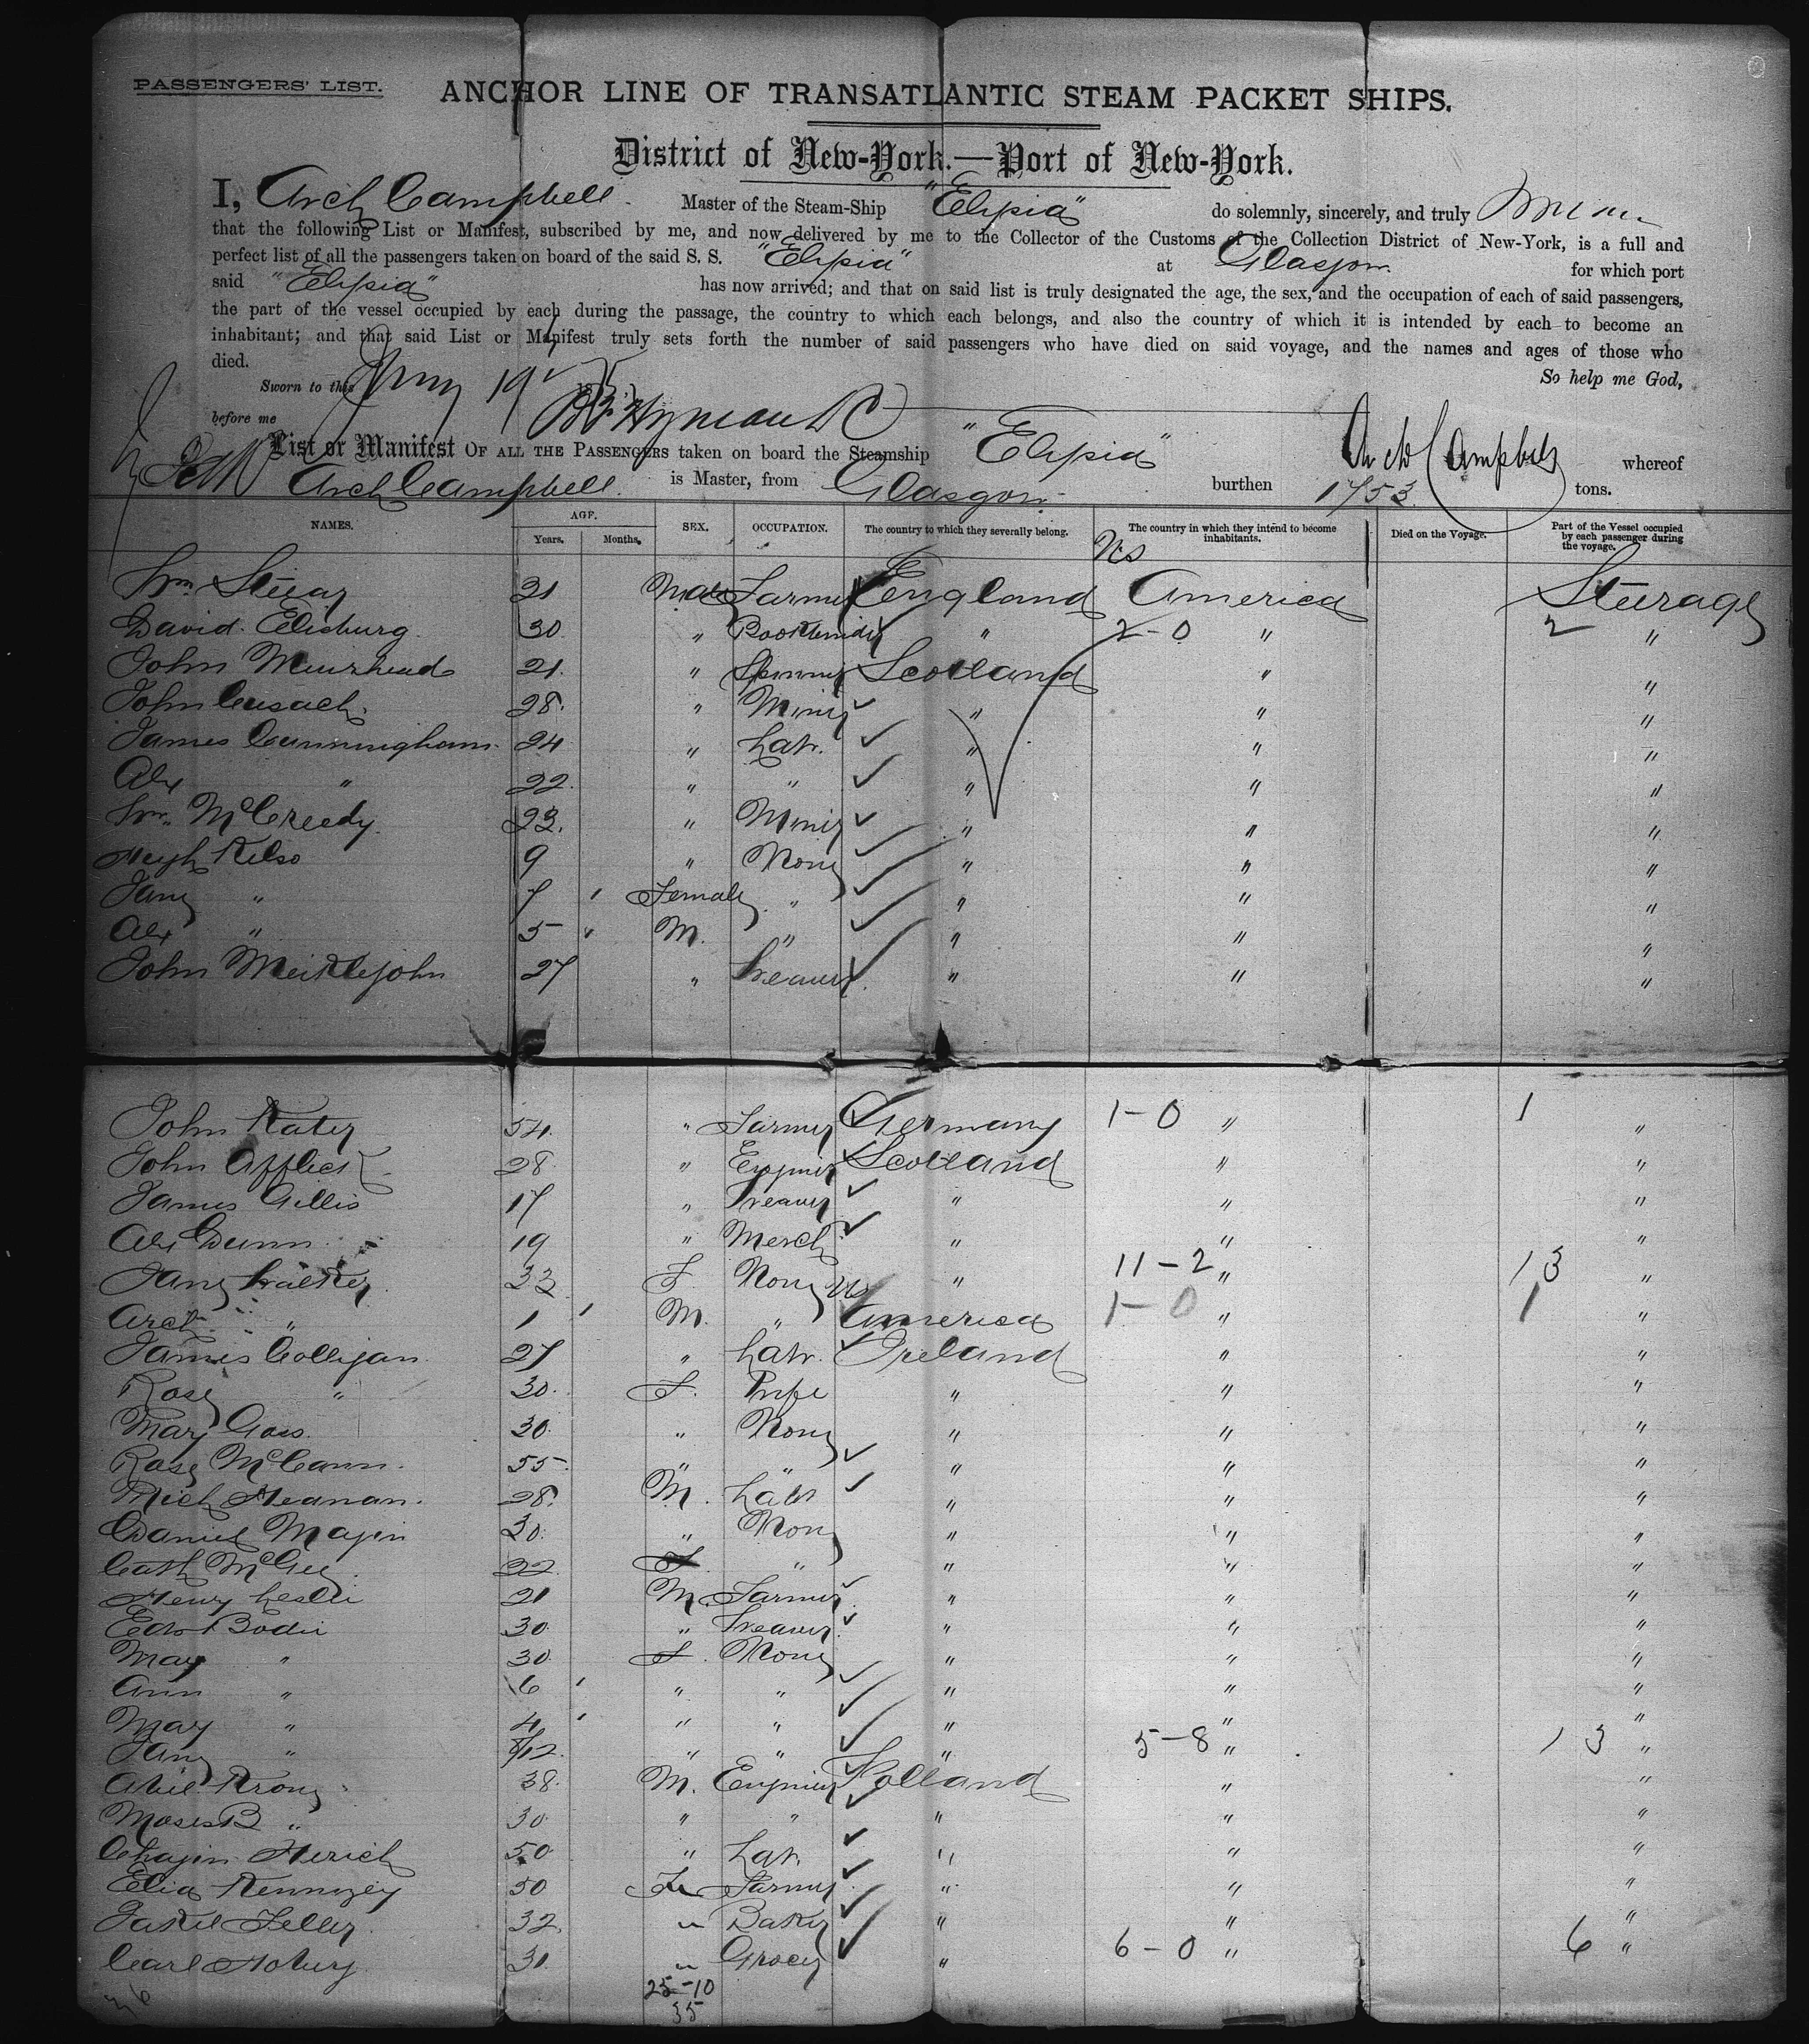 PASSENGERS' LIST.
ANCHOR LINE OF TRANSATLANTIC STEAM PACKET SHIPS.
District of New-York.—Port of New-York.
I, Arch Campbell Master of the Steam-Ship "Elysia" do solemnly, sincerely, and truly
that the following List or Manifest, subscribed by me, and now delivered by me to the Collector of the Customs of the Collection District of New-York, is a full and
perfect list of all the passengers taken on board of the said S. S. "Elysia" at Glasgow for which port
said "Elysia" has now arrived; and that on said list is truly designated the age, the sex, and the occupation of each of said passengers,
the part of the vessel occupied by each during the passage, the country to which each belongs, and also the country of which it is intended by each to become an
inhabitant; and that said List or Manifest truly sets forth the number of said passengers who have died on said voyage, and the names and ages of those who
died. So help me God,
Sworn to this 19
before me
List or Manifest OF ALL THE PASSENGERS taken on board the Steamship "Elysia" Arch Campbell whereof
Arch Campbell is Master, from Glasgow burthen 1753 tons.
NAMES. AGE. Years. Months. SEX. OCCUPATION. The country to which they severally belong. The country in which they intend to become inhabitants. Died on the Voyage. Part of the Vessel occupied by each passenger during the voyage.
US
Wm 21 Male Farmer England America Steerage
David 30 " " 2-0 " 2 "
John Muirhead 21 " Scotland " "
John Cusack 28 " Miner " " "
James Cunningham 24 " Labr. " " "
Alex " 22 " " " " "
Wm McCreedy 23 " Miner " " "
Hugh Kelso 9 " None " " "
Jane " 7 " Female " " " "
Alex " 5 " M. " " " "
John Meiklejohn 27 " Weaver " " "
John 54 " Farmer Germany 1-0 " 1 "
John Affleck 28 " Engineer Scotland " "
James Gillis 17 " Weaver " " "
Alex Dunn 19 " Merch " " "
Jane Walker 33 F None " 11-2 " 13 "
US
Arch " 1 M. " America 1-0 " 1 "
James Colligan 27 " Labr. Ireland " "
Rose " 30 F. Wife " " "
Mary Goss 30 " None " " "
Rose McCann 55 " " " " "
Mich Heanan 28 M. Labr " " "
Daniel Magin 30 " None " " "
Cath McGee 22 F " " " "
Henry Leslie 21 M. Farmer " " "
Edw Bodie 30 " Weaver " " "
Mary " 30 F. None " " "
Ann " 6 " " " " "
Mary " 4 " " " " "
Jane " /12 " " " 5-8 " 13 "
38 M. Engineer Holland " "
Moses B " 30 " " " " "
50 " Labr. " " "
50 Farmer " " "
32 " Baker " " "
Carl 31 " Grocer " 6-0 " 6 "
36 25-10
35